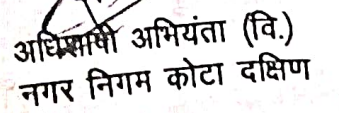 अधिशाषी अभियंता (वि.)
नगर निगम कोटा दक्षिण